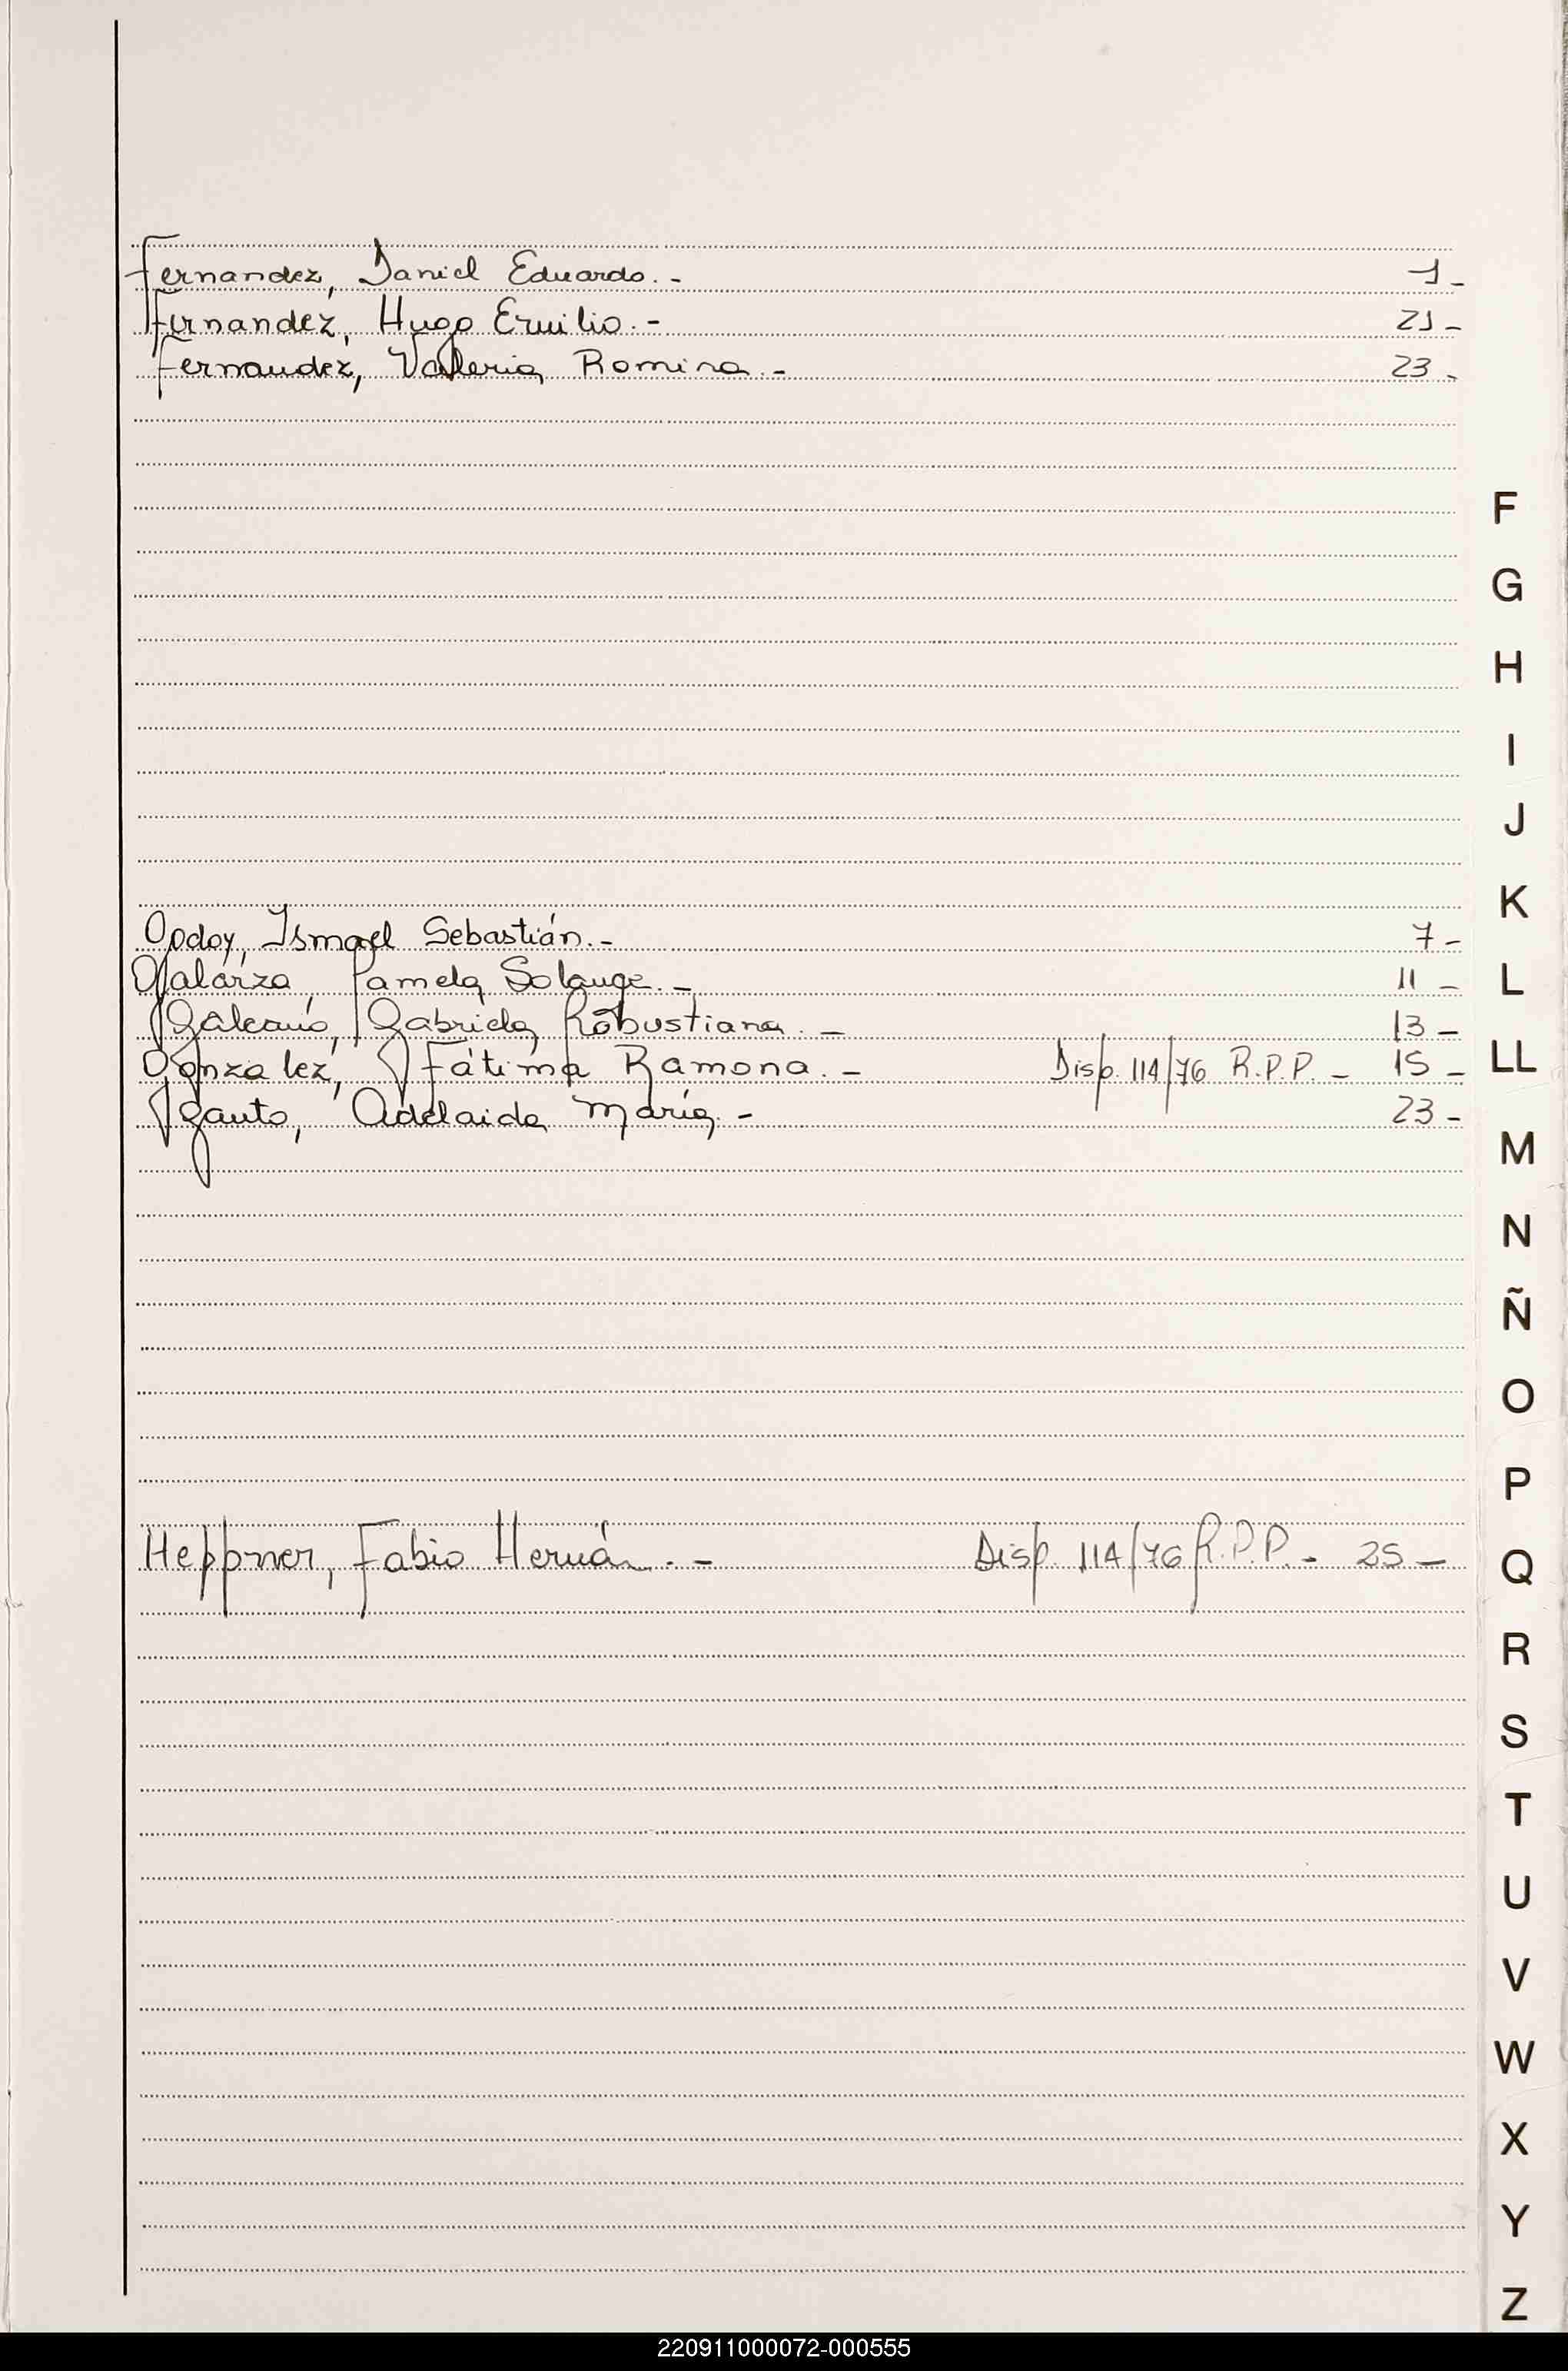 Fernandez, Daniel Eduardo.- 1-
Fernandez, Hugo Emilio.- 21-
Fernandez, Valeria Romina.- 23-
F
G
H
I
J
K
Godoy, Ismael Sebastián.- 7-
Galarza, Pamela Solange.- 11-
L
Galeano, Gabriela Robustiana.- 13-
Gonzalez, Fátima Ramona.- Disp. 114/76 R.P.P.- 15-
LL
Gauto, Adelaida María.- 23-
M
N
Ñ
O
P
Heppner, Fabio Hernán.- Disp. 114/76 R.P.P.- 25-
Q
R
S
T
U
V
W
X
Y
Z
220911000072-000555